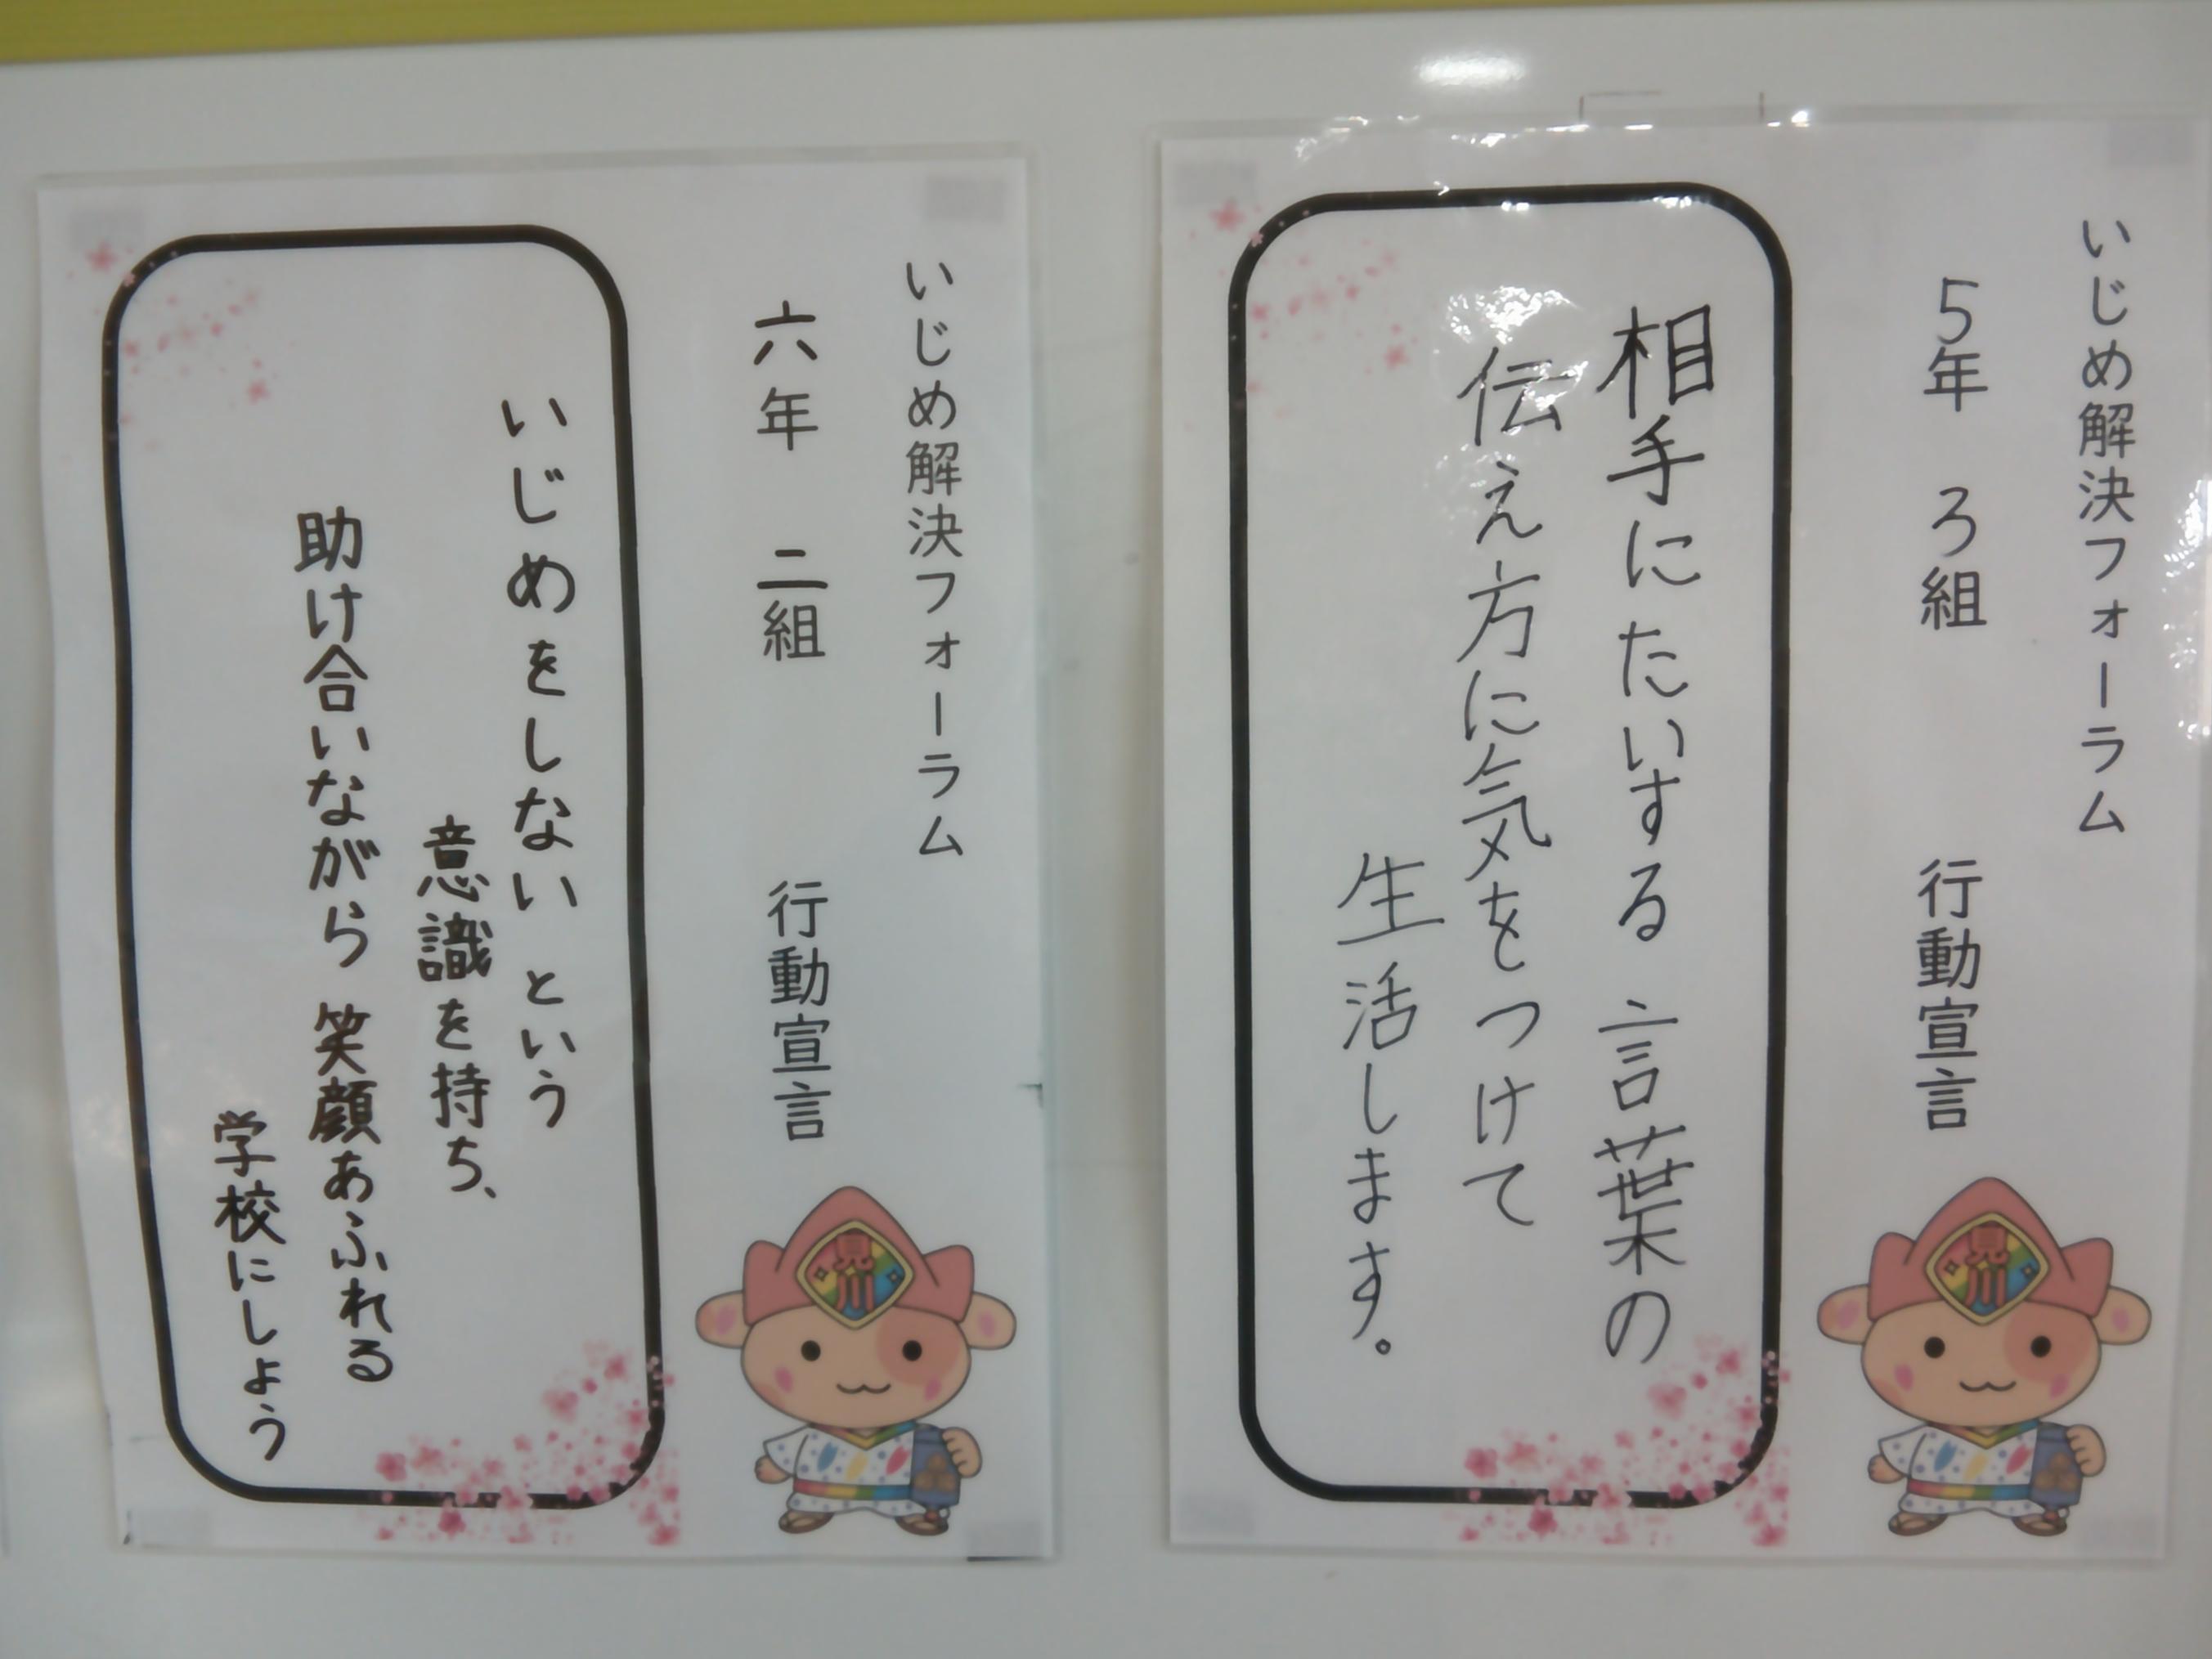 いじめ解決フォーラム
5年 ろ組 行動宣言
相手にたいする言葉の
伝え方に気をつけて
生活します。
見川
いじめ解決フォーラム
六年 二組 行動宣言
いじめをしないという
意識を持ち、
助け合いながら笑顔あふれる
学校にしょう
見川